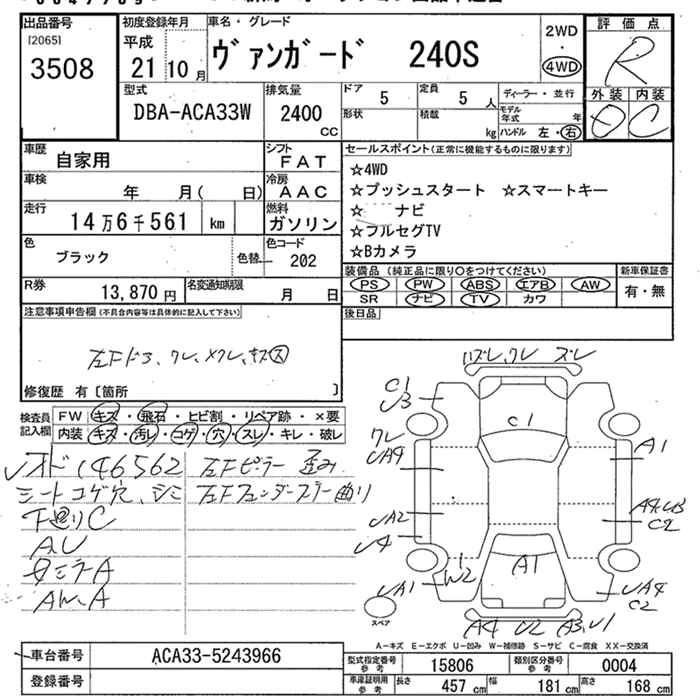 出品番号 初度登録年月 車名・グレード 2WD 評価点
[2065] 平成 ヴァンガード 240S ・ R
3508 21 10月 4WD
型式 排気量 ドア 5 定員 5人 ディーラー・並行 外装 内装
DBA-ACA33W 2400 形状 積載 モデル年式 年 C
CC kg ハンドル 左・右
車歴 自家用 シフト FAT セールスポイント(正常に機能するものに限ります)
車検 年 月( 日) 冷房 AAC ☆4WD
走行 14万6千561 km 燃料 ガソリン ☆プッシュスタート ☆スマートキー
☆ ナビ
☆フルセグTV
色 ブラック 色替 色コード 202 ☆Bカメラ
R券 13,870円 名変通知期限 月 日 装備品(純正品に限り○をつけてください) 新車保証書
PS PW ABS エアB AW 有・無
SR ナビ TV カワ
注意事項申告欄(不具合内容等は具体的に記入して下さい) 後日品
修復歴 有〔箇所 〕
検査員 FW キズ・飛石・ヒビ割・リペア跡・×要
記入欄 内装 キズ・汚レ・コゲ・穴・スレ・キレ・破レ
メオド146562 左Fピラー歪み
シートコゲ穴、シミ 左Fフェンダーステー曲り
下廻りC
ハズレ,ワレ ズレ
C1
U3
C1
ワレ
UA4
A1
UA2
A4 U3
C2
U4
UA1
W2
A1
UA4
C2
スペア
A4 U2 A3,U1
A-キズ E-エクボ U-凹み W-補修跡 S-サビ C-腐食 XX-交換済
車台番号 ACA33-5243966 型式指定番号 参考 15806 類別区分番号 参考 0004
登録番号 車庫証明用 参考 長さ 457cm 幅 181cm 高さ 168cm